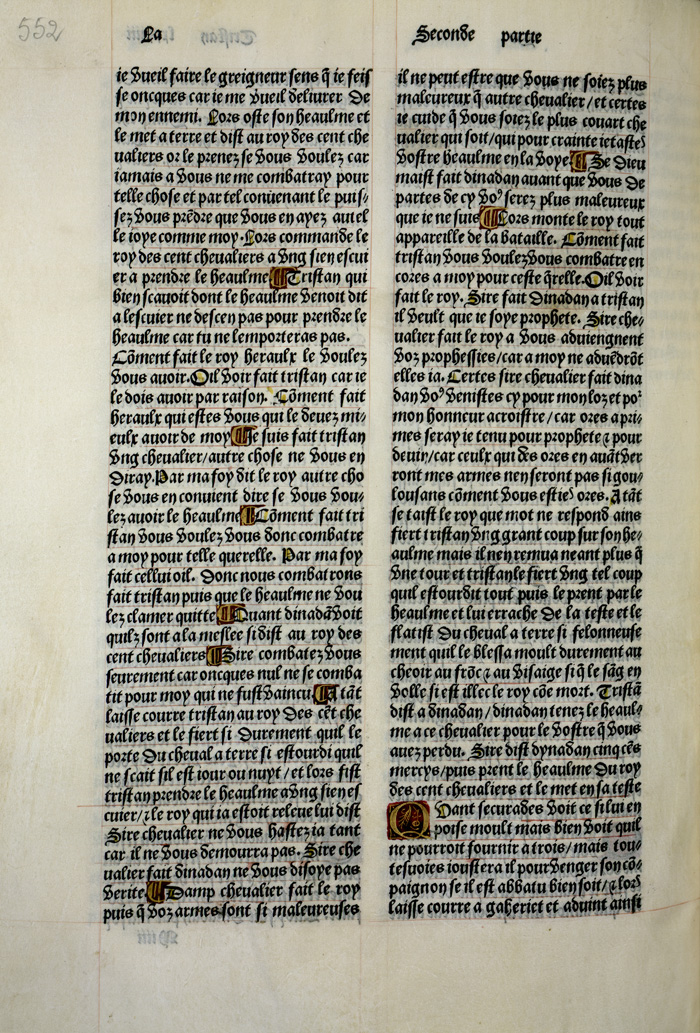 552
La
Seconde partie
ie vueil faire le greigneur sens q̃ ie feis
se oncques car ie me vueil deliurer de
mon ennemi. Lors oste son heaulme et
le met a terre et dist au roy des cent che
ualiers or le prenez se vous voulez car
iamais a vous ne me combatray pour
telle chose et par tel conuenant le puis⸗
sez vous prẽdre que vous en ayez autel
le ioye comme moy. Lors commande le
roy des cent cheualiers a vng sien escui
er a prendre le heaulme ¶ Tristan qui
bien scauoit dont le heaulme venoit dit
a lescuier ne descen pas pour prendre le
heaulme car tu ne lemporteras pas.
Cõment fait le roy heraulx le voulez
vous auoir. Oil voir fait tristan car ie
le dois auoir par raison. Cõment fait
heraulx qui estes vous qui le deuez mi⸗
eulx auoir de moy ¶ Je suis fait tristan
vng cheualier/autre chose ne vous en
diray. Par ma foy dit le roy autre cho
se vous en conuient dire se vous vou⸗
lez auoir le heaulme ¶ Cõment fait tri
stan vous voulez vous donc combatre
a moy pour telle querelle. Par ma foy
fait cellui oil. Donc nous combatrons
fait tristan puis que le heaulme ne vou
lez clamer quitte ¶ Quant dinadã voit
quilz sont a la meslee si dist au roy des
cent cheualiers ¶ Sire combatez vous
seurement car oncques nul ne se comba
tit pour moy qui ne fust vaincu. ¶ A tãt
laisse courre tristan au roy des cẽt che
ualiers et le fiert si durement quil le
porte du cheual a terre si estourdi quil
ne scait sil est iour ou nuyt/et lors fist
tristan prendre le heaulme a vng sien es
cuier/⁊ le roy qui ia estoit releue lui dist
Sire cheualier ne vous hastez ia tant
car il ne vous demourra pas. Sire che
ualier fait dinadan ne vous disoye pas
verite ¶ Damp cheualier fait le roy
puis q̃ voz armes sont si maleureuses
il ne peut estre que vous ne soiez plus
maleureux q̃ autre cheualier/et certes
ie cuide q̃ vous soiez le plus couart che
ualier qui soit/qui pour crainte ietastes
vostre heaulme en la voye ¶ Se dieu
maist fait dinadan auant que vous de
partes de cy voꝰ serez plus maleureux
que ie ne suis ¶ Lors monte le roy tout
appareille de la bataille. Cõment fait
tristan vous voulez vous combatre en
cores a moy pour ceste q̃relle. Oil voir
fait le roy. Sire fait dinadan a tristan
il veult que ie soye prophete. Sire che⸗
ualier fait le roy a vous aduiengnent
voz prophessies/car a moy ne aduẽdrõt
elles ia. Certes sire cheualier fait dina
dan voꝰ venistes cy pour mon loz et poᷣ
mon honneur acroistre/car ores a pri⸗
mes seray ie tenu pour prophete ⁊ pour
deuin/car ceulx qui des ores en auãt ver
ront mes armes nen seront pas si gou⸗
lousans cõment vous esties ores. A tãt
se taist le roy que mot ne respond ains
fiert tristan vng grant coup sur son he⸗
aulme mais il nen remua neant plus q̃
vne tour et tristan le fiert vng tel coup
quil estourdit tout puis le prent par le
heaulme et lui errache de la teste et le
flatist du cheual a terre si felonneuse
ment quil le blessa moult durement au
cheoir au frõc ⁊ au visaige si q̃ le sãg en
volle si est illec le roy cõe mort. Tristã
dist a dinadan/dinadan tenez le heaul⸗
me a ce cheualier pour le vostre q̃ vous
auez perdu. Sire dist dynadan cinq cẽs
mercys/puis prent le heaulme du roy
des cent cheualiers et le met en sa teste
Quant securades voit ce si lui en
poise moult mais bien voit quil
ne pourroit fournir a trois/mais tou⸗
tesuoies ioustera il pour venger son cõ⸗
paignon se il est abbatu bien soit/⁊ lors
laisse courre a gaheriet et aduint ainsi